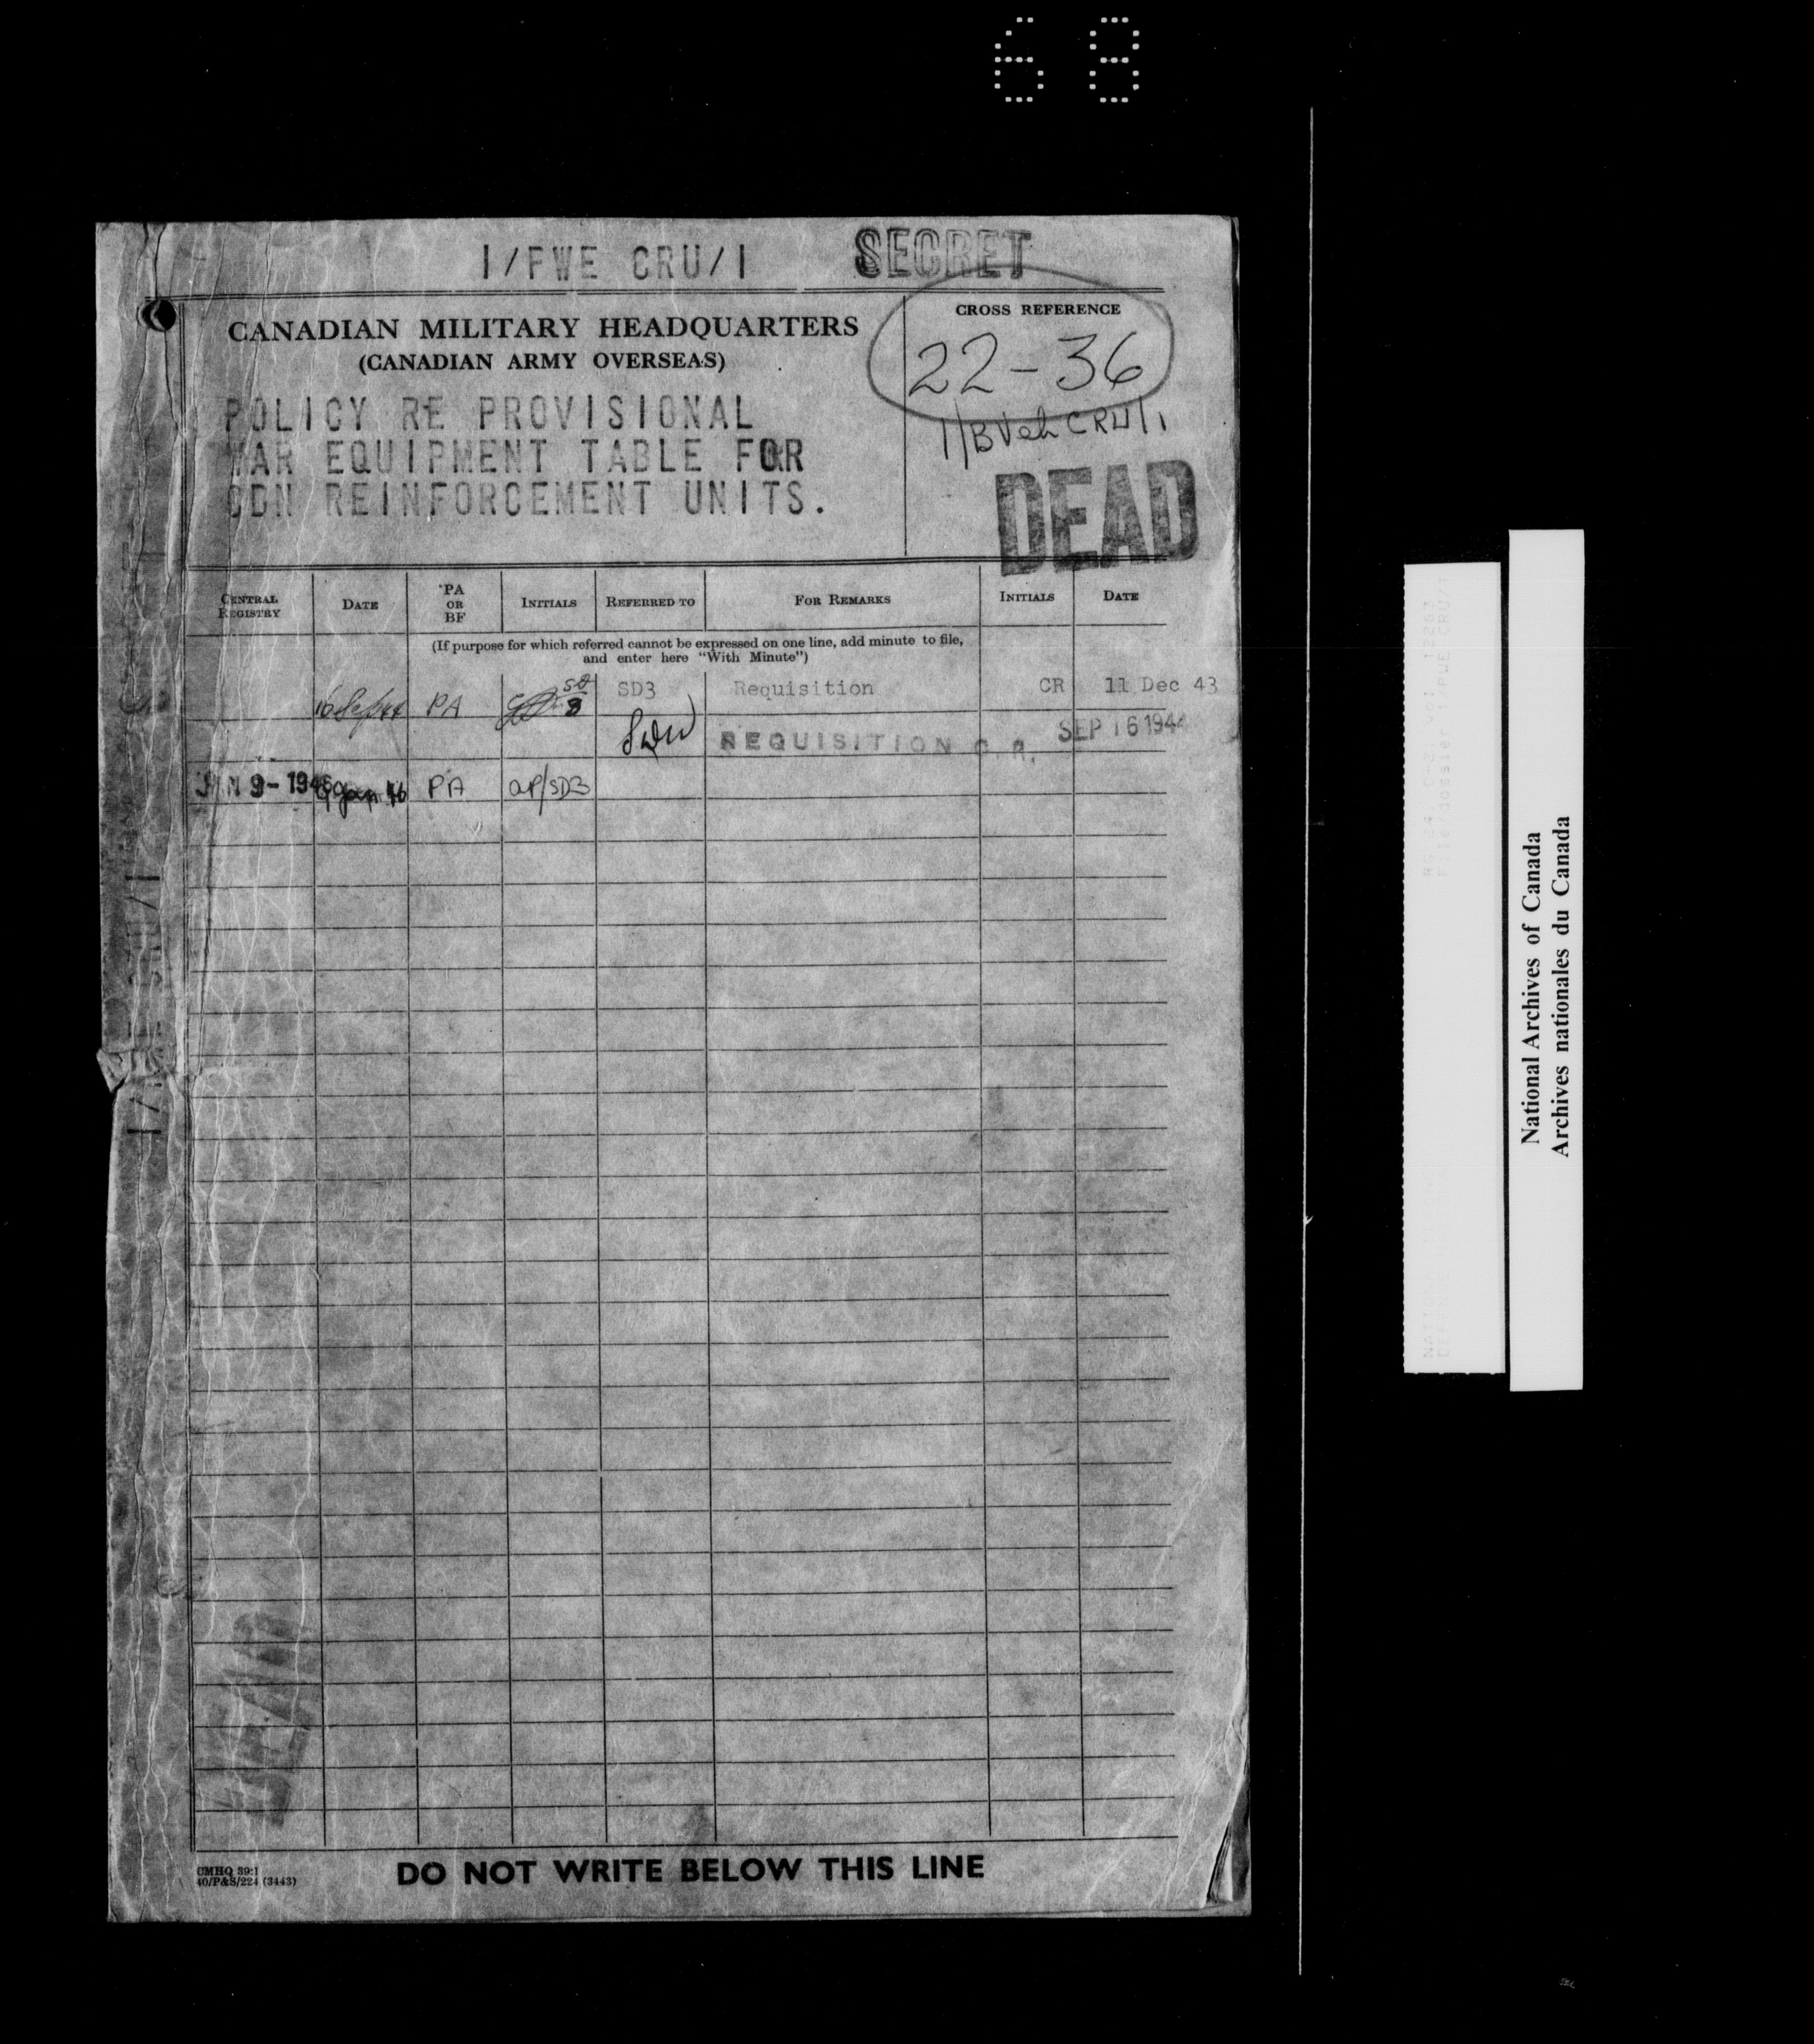 68
1/FWE CRU/1 SECRET
CANADIAN MILITARY HEADQUARTERS
(CANADIAN ARMY OVERSEAS)
CROSS REFERENCE
22-36
1/BVehCRU/1
POLICY RE PROVISIONAL
WAR EQUIPMENT TABLE FOR
CDN REINFORCEMENT UNITS.
DEAD
CENTRAL REGISTRY
DATE
PA OR BF
INITIALS
REFERRED TO
FOR REMARKS
INITIALS
DATE
(If purpose for which referred cannot be expressed on one line, add minute to file,
and enter here "With Minute")
16 Sep 44 PA SD 3 SD3 Requisition CR 11 Dec 43
REQUISITION C.R. SEP 16 1944
JAN 9-1946 9 Jan 46 PA aP/SD3
DEAD
CMHQ 39:1
40/P&S/224 (3443)
DO NOT WRITE BELOW THIS LINE
National Archives of Canada
Archives nationales du Canada